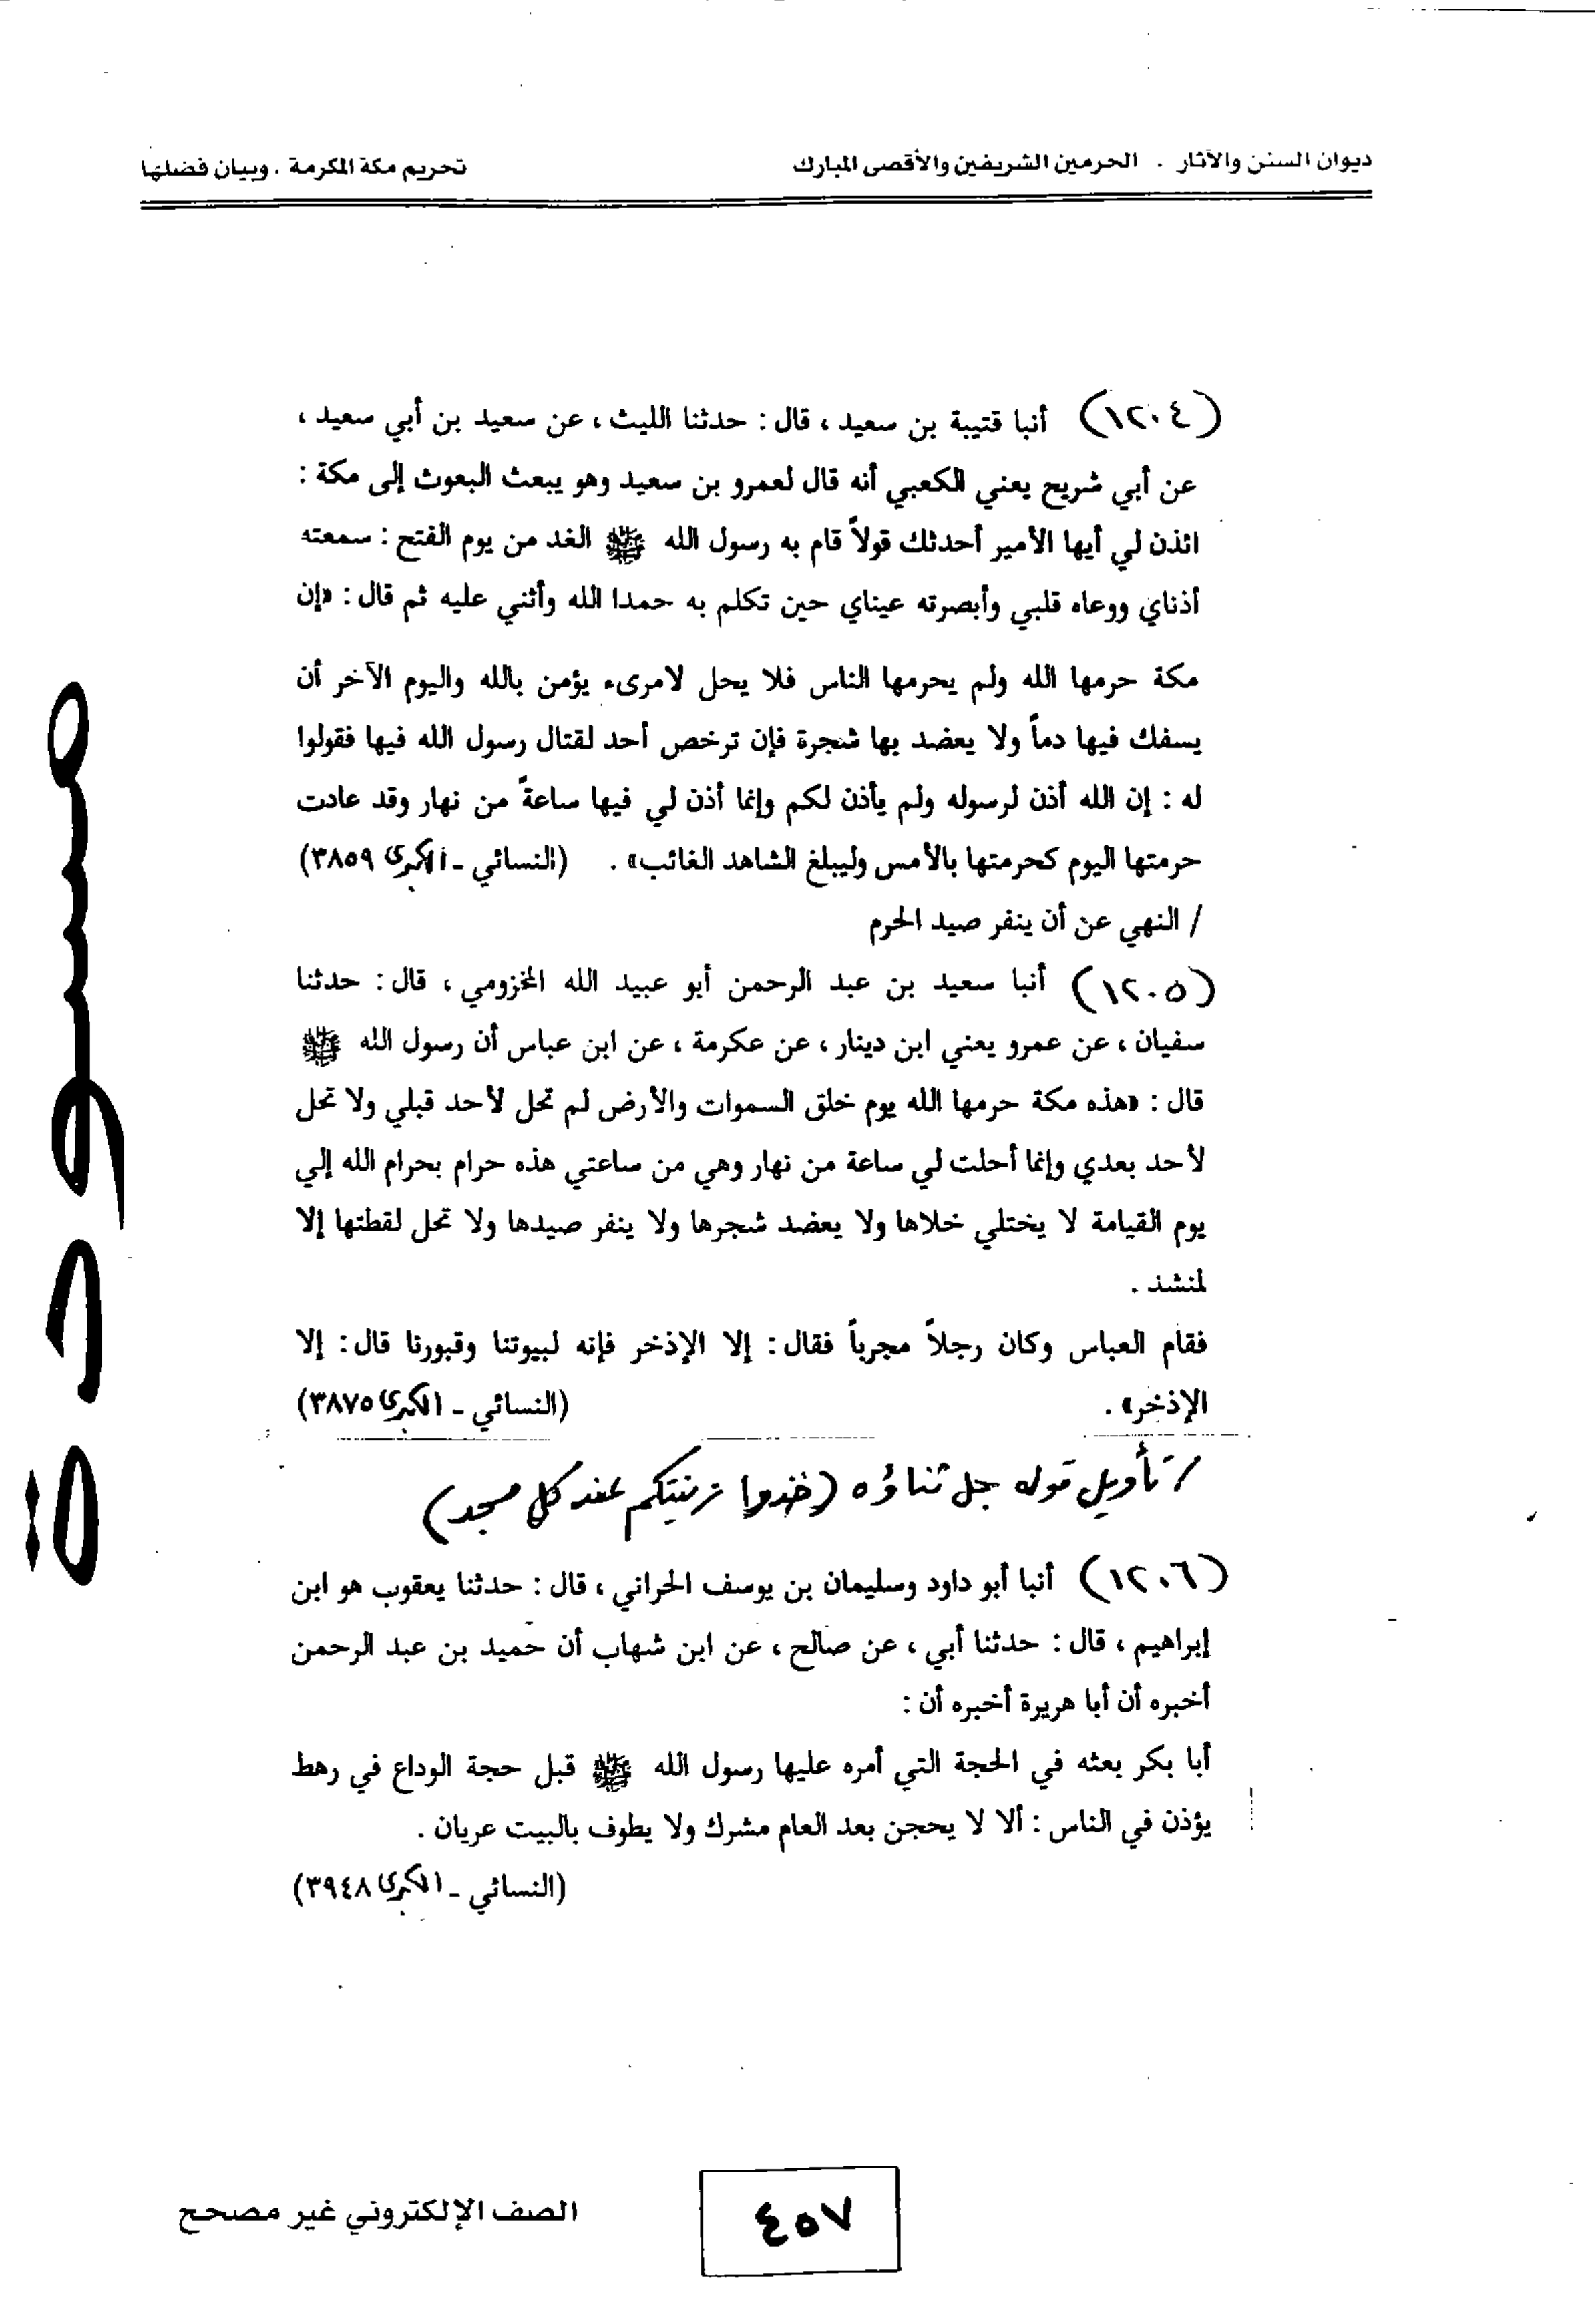 ديوان السنن والآثار . الحرمين الشريفين والأقصى المبارك
تحريم مكة المكرمة . وبيان فضلها
(١٢٠٤) أنبا قتيبة بن سعيد ، قال : حدثنا الليث ، عن سعيد بن أبي سعيد ،
عن أبي شريح يعني الكعبي أنه قال لعمرو بن سعيد وهو يبعث البعوث إلى مكة :
ائذن لي أيها الأمير أحدثك قولاً قام به رسول الله ﷺ الغد من يوم الفتح : سمعته
أذناي ووعاه قلبي وأبصرته عيناي حين تكلم به حمدا الله وأثني عليه ثم قال : «إن
مكة حرمها الله ولم يحرمها الناس فلا يحل لامرىء يؤمن بالله واليوم الآخر أن
يسفك فيها دماً ولا يعضد بها شجرة فإن ترخص أحد لقتال رسول الله فيها فقولوا
له : إن الله أذن لرسوله ولم يأذن لكم وإنما أذن لي فيها ساعةً من نهار وقد عادت
حرمتها اليوم كحرمتها بالأمس وليبلغ الشاهد الغائب» . (النسائي - الكبرى ٣٨٥٩)
/ النهي عن أن ينفر صيد الحرم
(١٢٠٥) أنبا سعيد بن عبد الرحمن أبو عبيد الله المخزومي ، قال : حدثنا
سفيان ، عن عمرو يعني ابن دينار ، عن عكرمة ، عن ابن عباس أن رسول الله ﷺ
قال : «هذه مكة حرمها الله يوم خلق السموات والأرض لم تحل لأحد قبلي ولا تحل
لأحد بعدي وإنما أحلت لي ساعة من نهار وهي من ساعتي هذه حرام بحرام الله إلي
يوم القيامة لا يختلي خلاها ولا يعضد شجرها ولا ينفر صيدها ولا تحل لقطتها إلا
لمنشد .
فقام العباس وكان رجلاً مجرباً فقال : إلا الإذخر فإنه لبيوتنا وقبورنا قال : إلا
الإذخر» . (النسائي - الكبرى ٣٨٧٥)
/ تأويل قوله جل ثناؤه (خذوا زينتكم عند كل مسجد)
(١٢٠٦) أنبا أبو داود وسليمان بن يوسف الحراني ، قال : حدثنا يعقوب هو ابن
إبراهيم ، قال : حدثنا أبي ، عن صالح ، عن ابن شهاب أن حميد بن عبد الرحمن
أخبره أن أبا هريرة أخبره أن :
أبا بكر بعثه في الحجة التي أمره عليها رسول الله ﷺ قبل حجة الوداع في رهط
يؤذن في الناس : ألا لا يحجن بعد العام مشرك ولا يطوف بالبيت عريان .
(النسائي - الكبرى ٣٩٤٨)
مسودة
٤٥٧
الصف الإلكتروني غير مصحح